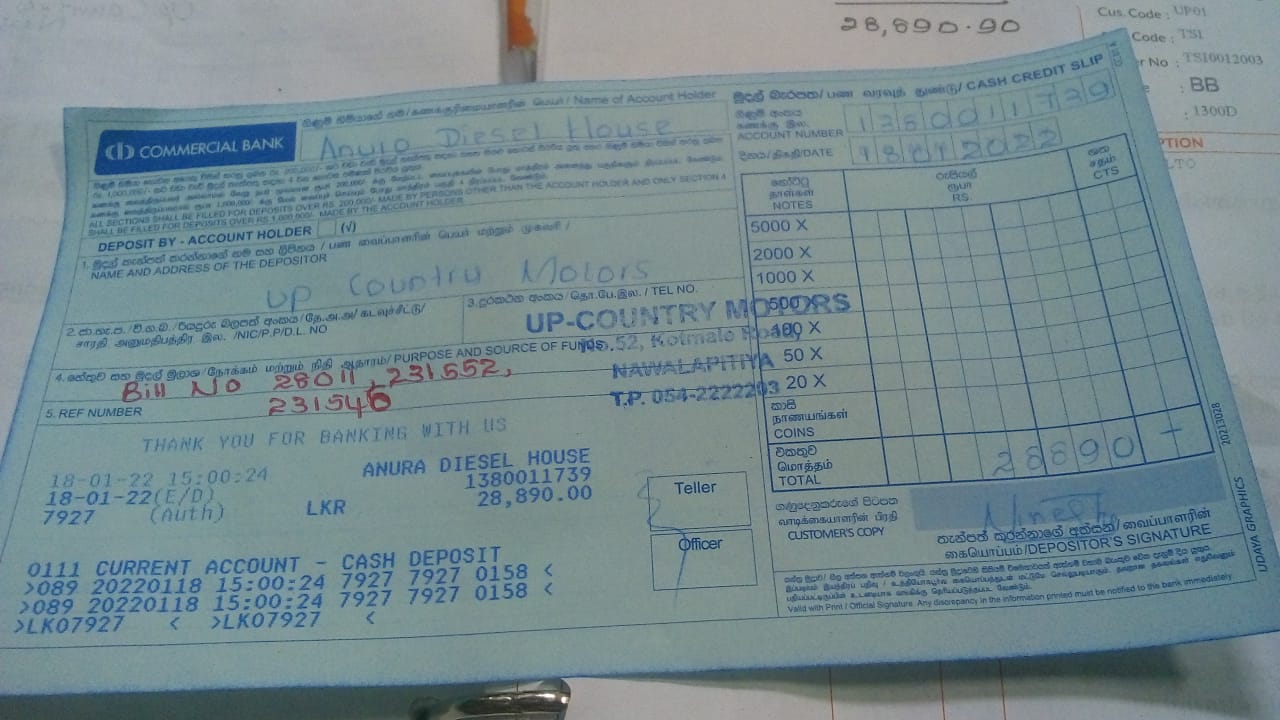 28,890.90
Cus. Code : UP01
Code : TSI
No : TSI0012003
: BB
: 1300D
COMMERCIAL BANK
Name of Account Holder
Anura Diesel House
මුදල් බැරපත/ பண வரவுத் துண்டு/ CASH CREDIT SLIP
ගිණුම් අංකය
கணக்கு இல.
ACCOUNT NUMBER
1380011739
දිනය/திகதி/DATE
18012022
ALL SECTIONS SHALL BE FILLED FOR DEPOSITS OVER RS. 200,000/- MADE BY PERSONS OTHER THAN THE ACCOUNT HOLDER AND ONLY SECTION 4
SHALL BE FILLED FOR DEPOSITS OVER RS 1,000,000/- MADE BY THE ACCOUNT HOLDER
DEPOSIT BY - ACCOUNT HOLDER (√)
NAME AND ADDRESS OF THE DEPOSITOR
Up Country Motors
NIC/P.P/D.L. NO
TEL NO.
UP-COUNTRY MOTORS
No.52, Kotmale Road,
NAWALAPITIYA
T.P. 054-2222203
PURPOSE AND SOURCE OF FUNDS
Bill No 28011, 231552,
231546
5. REF NUMBER
නෝට්ටු
நாள்கள்
NOTES
රුපියල්
ரூபா
RS.
ශත
சதம்
CTS
5000 X
2000 X
1000 X
500 X
100 X
50 X
20 X
කාසි
நாணயங்கள்
COINS
එකතුව
மொத்தம்
TOTAL
28890 -
THANK YOU FOR BANKING WITH US
18-01-22 15:00:24 ANURA DIESEL HOUSE
18-01-22(E/D) 1380011739
7927 (Auth) LKR 28,890.00
Teller
Officer
0111 CURRENT ACCOUNT - CASH DEPOSIT
>089 20220118 15:00:24 7927 7927 0158 <
>089 20220118 15:00:24 7927 7927 0158 <
>LK07927 < >LK07927 <
ගනුදෙනුකරුගේ පිටපත
வாடிக்கையாளரின் பிரதி
CUSTOMER'S COPY
තැන්පත් කරන්නාගේ අත්සන/ வைப்பாளரின்
கையொப்பம்/DEPOSITOR'S SIGNATURE
Valid with Print / Official Signature. Any discrepancy in the information printed must be notified to the bank immediately.
UDAYA GRAPHICS
20213028